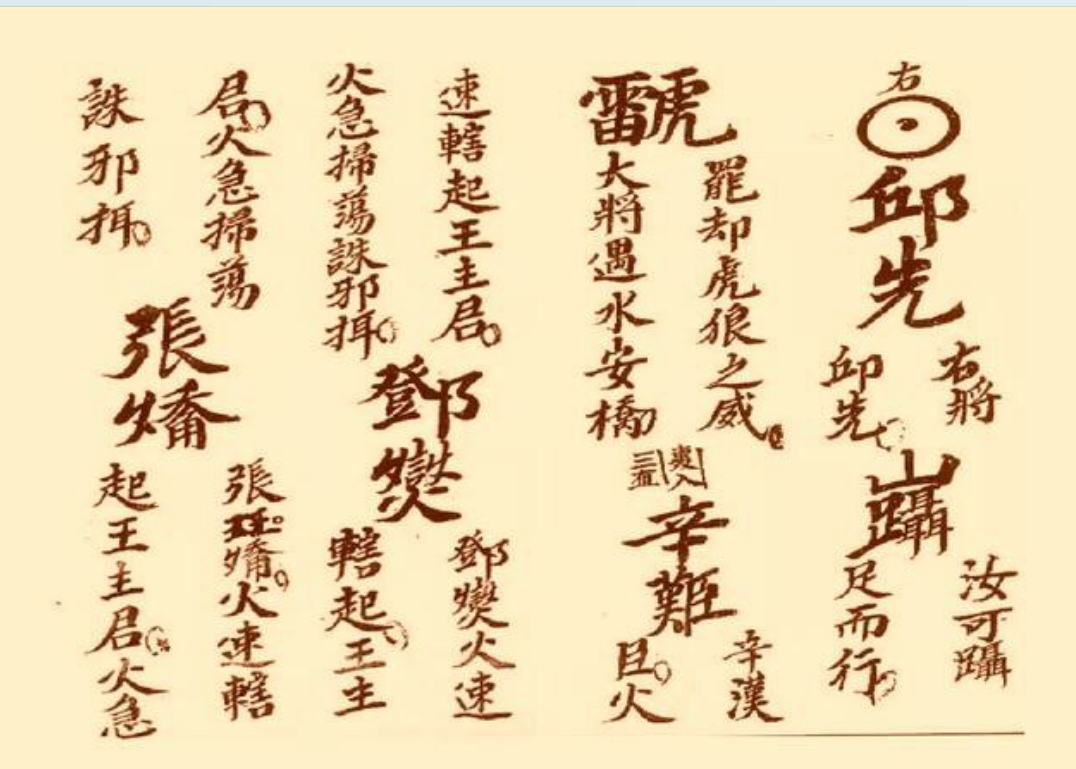 右
邱先
右將
邱先
汝可躡
足而行
罷却虎狼之威
大將遇水安橋
辛
辛漢
臣火
速轄起王主君
火急掃蕩誅邪
鄧燮
鄧燮火速
轄起王主
君火急掃蕩
誅邪
張燆
張燆火速轄
起王主君火急